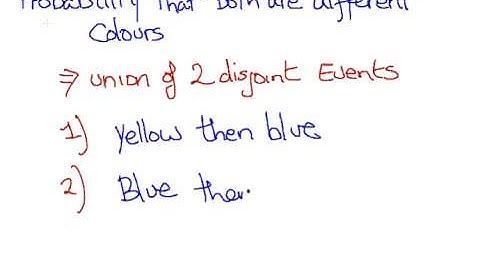 Probability that both are different
Colours
⇒ union of 2 disjoint Events
1) Yellow then blue
2) Blue the